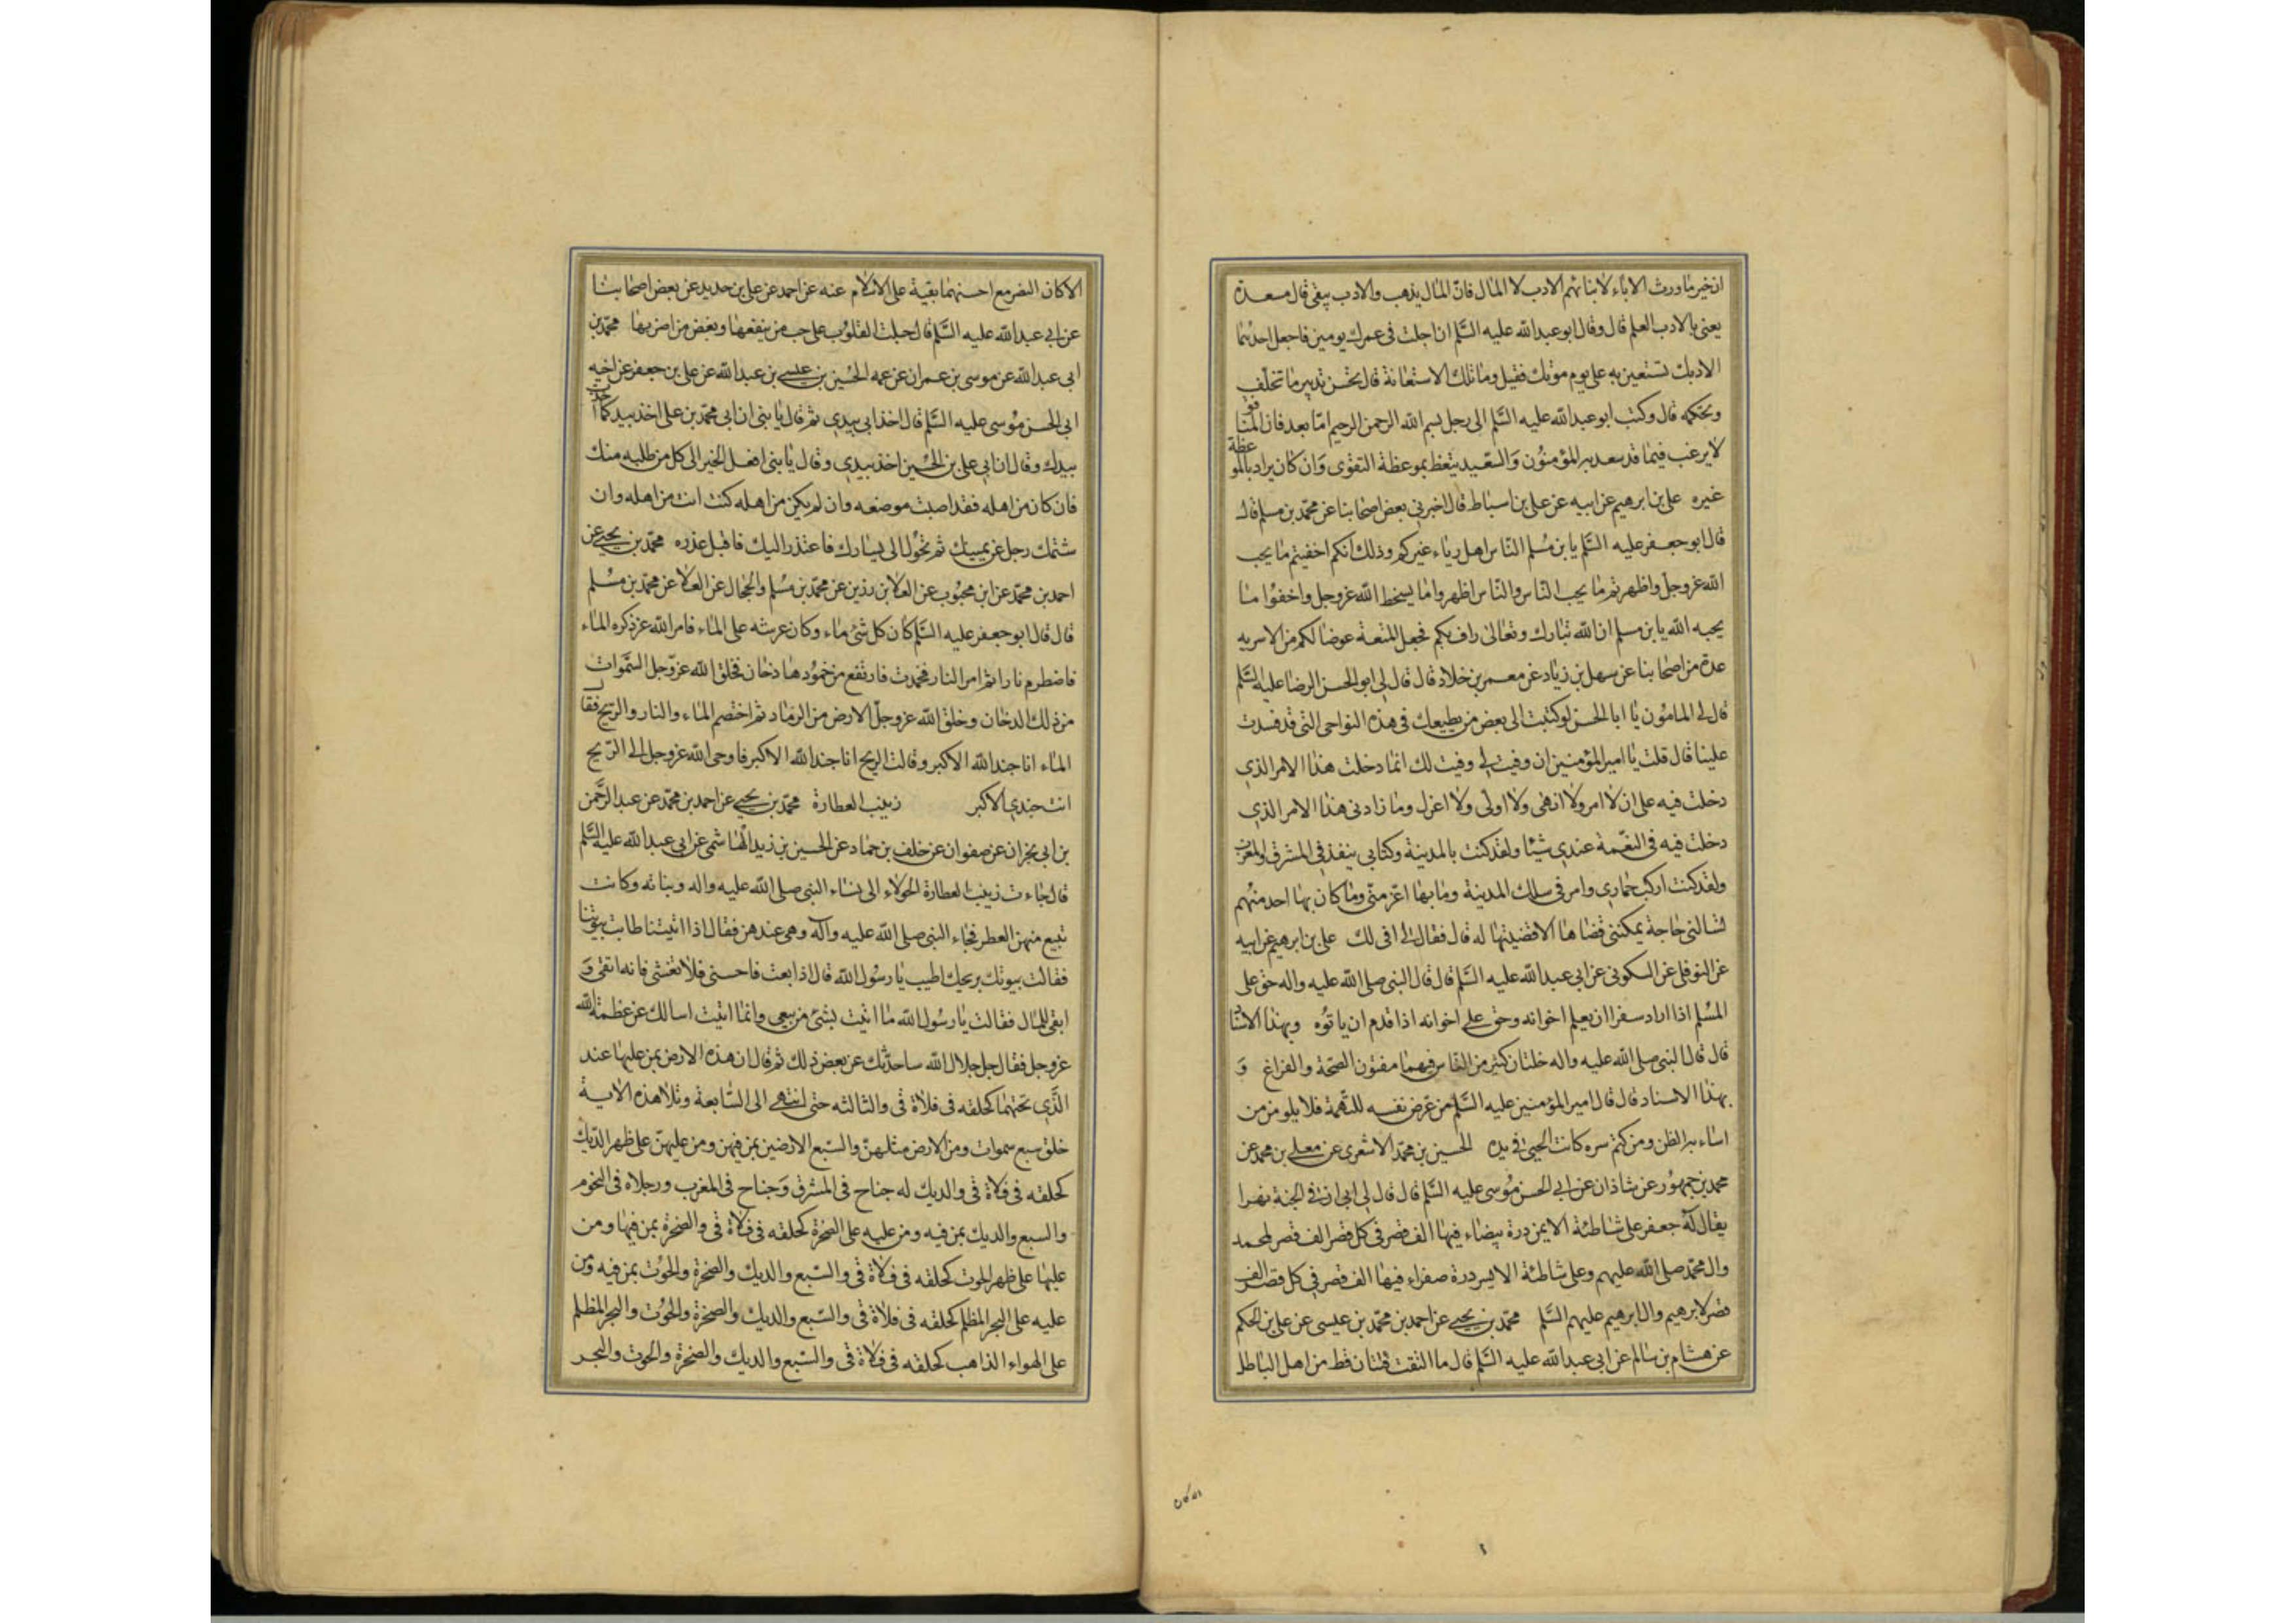 ان خير ما ورث الاباء لابنائهم الادب لا المال فان المال يذهب والادب يبقى قال مسعدة
يعنى بالادب العلم قال وقال ابو عبدالله عليه السَّلم ان اجلت فى عمرك يومين فاجعل احدهما
الادبك تستعين به على يوم موتك فقيل وما تلك الاستعانة قال تحسن تدبير ما تخلف
وتحكمه قال وكتب ابو عبدالله عليه السَّلم الى رجل بسم الله الرحمن الرحيم امّا بعد فان المنافق
لا يرغب فيما قد سعد به المؤمنون والسّعيد يتعظ بموعظة التقوى وان كان يراد بالموعظة
غيره على بن ابرهيم عن ابيه عن على بن اسباط قال اخبرنى بعض اصحابنا عن محمّد بن مسلم قال
قال ابو جعفر عليه السَّلم يا بن مُسلم النّاس اهل رياء غيركم وذلك انكم اخفيتم ما يحب
الله عز وجل واظهرتم ما يحب النّاس والنّاس اظهروا ما يسخط الله عز وجل واخفوا ما
يحبه الله يا بن مسلم ان الله تبارك وتعالى راف بكم فجعل المتعة عوضا لكم من الاسربه
عدة من اصحابنا عن سهل بن زياد عن معمر بن خلاد قال قال لى ابو الحسن الرضا عليه السَّلم
قال لى المامون يا ابا الحسن لو كتبت الى بعض من يطيعك فى هذه النواحى التى قد فسدت
علينا قال قلت يا امير المؤمنين ان وفيت لى وفيت لك انما دخلت هذا الامر الذى
دخلت فيه على ان لا امر ولا انهى ولا اولى ولا اعزل وما زادنى هذا الامر الذى
دخلت فيه فى النعّمة عندى شيئا ولقد كنت بالمدينة وكتابى ينفذ فى المشرق والمغرب
ولقد كنت اركب حمارى وامر فى سلك المدينة وما بها اعز منّى وما كان بها احد منهم
يسالنى حاجة يمكننى قضاها الا قضيتها له قال فقال لى افى لك على بن ابرهيم عن ابيه
عن النوفلى عن السكونى عن ابى عبدالله عليه السَّلم قال قال النبى صلى الله عليه واله حق على
المسُلم اذا اراد سفرا ان يعلم اخوانه وحق على اخوانه اذا قدم ان ياتوُه وبهذا الاسنا
قال قال النبى صلى الله عليه واله خلتان كثير من الناس فيهما مفتون الصّحة والفراغ وَ
بهذا الاسناد قال قال امير المؤمنين عليه السَّلم من عرض نفسه للتهمة فلا يلومن من
اساء به الظن ومن كتم سره كانت الخيرة فى يده الحسين بن محمّد الاشعرى عن معلى بن محمد عن
محمد بن جمهُور عن شاذان عن ابى الحسن مُوسى عليه السَّلم قال قال لى ابى ان فى الجنة نهرا
يقال له جعفر على شاطئه الايمن درة بيضاء فيها الف قصر فى كل قصر الف قصر لمحمد
وال محمّد صلى الله عليهم وعلى شاطئه الايسر درة صفراء فيها الف قصر فى كل قصر الف
قصر لابرهيم وال ابرهيم عليهم السَّلم محمّد بن يحيى عن احمد بن محمّد بن عيسى عن على بن الحكم
عن هشام بن سالم عن ابى عبدالله عليه السَّلم قال ما التقت فئتان قط من اهل الباطل
الا كان النصر مع احسنهما بقية على الاسلام عنه عن احمد عن على بن حديد عن بعض اصحابنا
عن ابى عبدالله عليه السَّلم قال جبلت القلوُب على حب من ينفعها وبغض من اضر بها محمّد بن
ابى عبدالله عن موسى بن عمران عن عمه الحُسين بن عيسى بن عبدالله عن على بن جعفر عن اخيه
ابى الحسن مُوسى عليه السَّلم قال اخذ ابى بيدى ثم قال يا بنى ان ابى محمّد بن على اخذ بيدى كما اخذت
بيدك وقال ان ابى على بن الحُسين اخذ بيدى وقال يا بنى افعل الخير الى كل من طلبه منك
فان كان من اهله فقد اصبت موضعه وان لم يكن من اهله كنت انت من اهله وان
شتمك رجل عن يمينك ثم تحوُل الى يسارك فاعتذر اليك فاقبل عذره محمّد بن يحيى عن
احمد بن محمّد عن ابن محبُوب عن العلا بن رزين عن محمّد بن مسُلم والحجال عن العلا عن محمّد بن مسُلم
قال قال ابو جعفر عليه السَّلم كان كل شئ ماء وكان عرشه على الماء فامر الله عز ذكره الماء
فاضطرم نارا ثم امر النار فخمدت فارتفع من خموُدها دخان فخلق الله عز وجل السَّموات
من ذلك الدخان وخلق الله عز وجلّ الارض من الرماد ثم اختصم الماء والنار والريح فقال
الماء انا جند الله الاكبر وقالت الريح انا جند الله الاكبر فاوحى الله عز وجل الى الرّيح
انت جندى الاكبر زينب العطارة محمّد بن يحيى عن احمد بن محمّد عن عبد الرَّحمن
بن ابى نجران عن صفوان عن خلف بن حماد عن الحسين بن زيد الهاشمى عن ابى عبدالله عليه السَّلم
قال جاءت زينب العطارة الحولاء الى نساء النبى صلى الله عليه واله وبناته وكانت
تبيع منهن العطر فجاء النبى صلى الله عليه وآله وهى عندهن فقال اذا اتيتنا طابت بيوُتنا
فقالت بيوتك بريحك اطيب يا رسُول الله قال اذا بعت فاحسنى فلا تغشى فانه اتقى وَ
ابقى للمال فقالت يا رسُول الله ما اتيت بشئ من بيعى وانما اتيت اسالك عن عظمة الله
عز وجل فقال جل جلال الله ساحدّثك عن بعض ذلك ثم قال ان هذه الارض بمن عليها عند
الَّذى تحتها كحلقه فى فلاة قى والثالثه حتى انتهى الى السَّابعة وتلا هذه الاية
خلق سبع سموات ومن الارض مثلهنّ والسّبع الارضين بمن فيهن ومن عليهنّ على ظهر الدّيك
كحلقه فى فلاة قى والديك له جناح فى المشرق وَجناح فى المغرب ورجلاه فى التخوم
والسبع والديك بمن فيه ومن عليه على الصّخرة كحلقه فى فلاة قى والصّخرة بمن فيها ومن
عليها على ظهر الحوت كحلقه فى فلاة قى والسّبع والديك والصّخرة والحُوت بمن فيه ومن
عليه على البحر المظلم كحلقه فى فلاة قى والسّبع والديك والصخرة والحُوت والبحر المظلم
على الهواء الذاهب كحلقه فى فلاة قى والسّبع والديك والصخرة والحوت والبحر